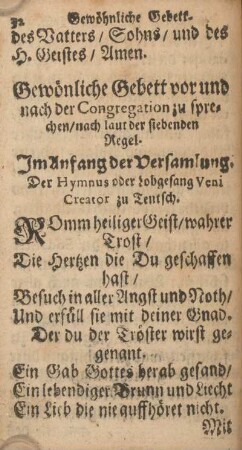 32 Gewöhnliche Gebett.
des Vatters / Sohns / und des
H. Geistes / Amen.
Gewönliche Gebett vor und
nach der Congregation zu spre-
chen / nach laut der siebenden
Regel.
Im Anfang der Versamlung.
Der Hymnus oder Lobgesang Veni
Creator zu Teutsch.
KOmm heiliger Geist / wahrer
Trost /
Die Hertzen die Du geschaffen
hast /
Besuch in aller Angst und Noth /
Und erfüll sie mit deiner Gnad.
Der du der Tröster wirst ge-
genant.
Ein Gab Gottes herab gesand /
Ein lebendiger Brunn und Liecht
Ein Lieb die nie auffhöret nicht.
Mit